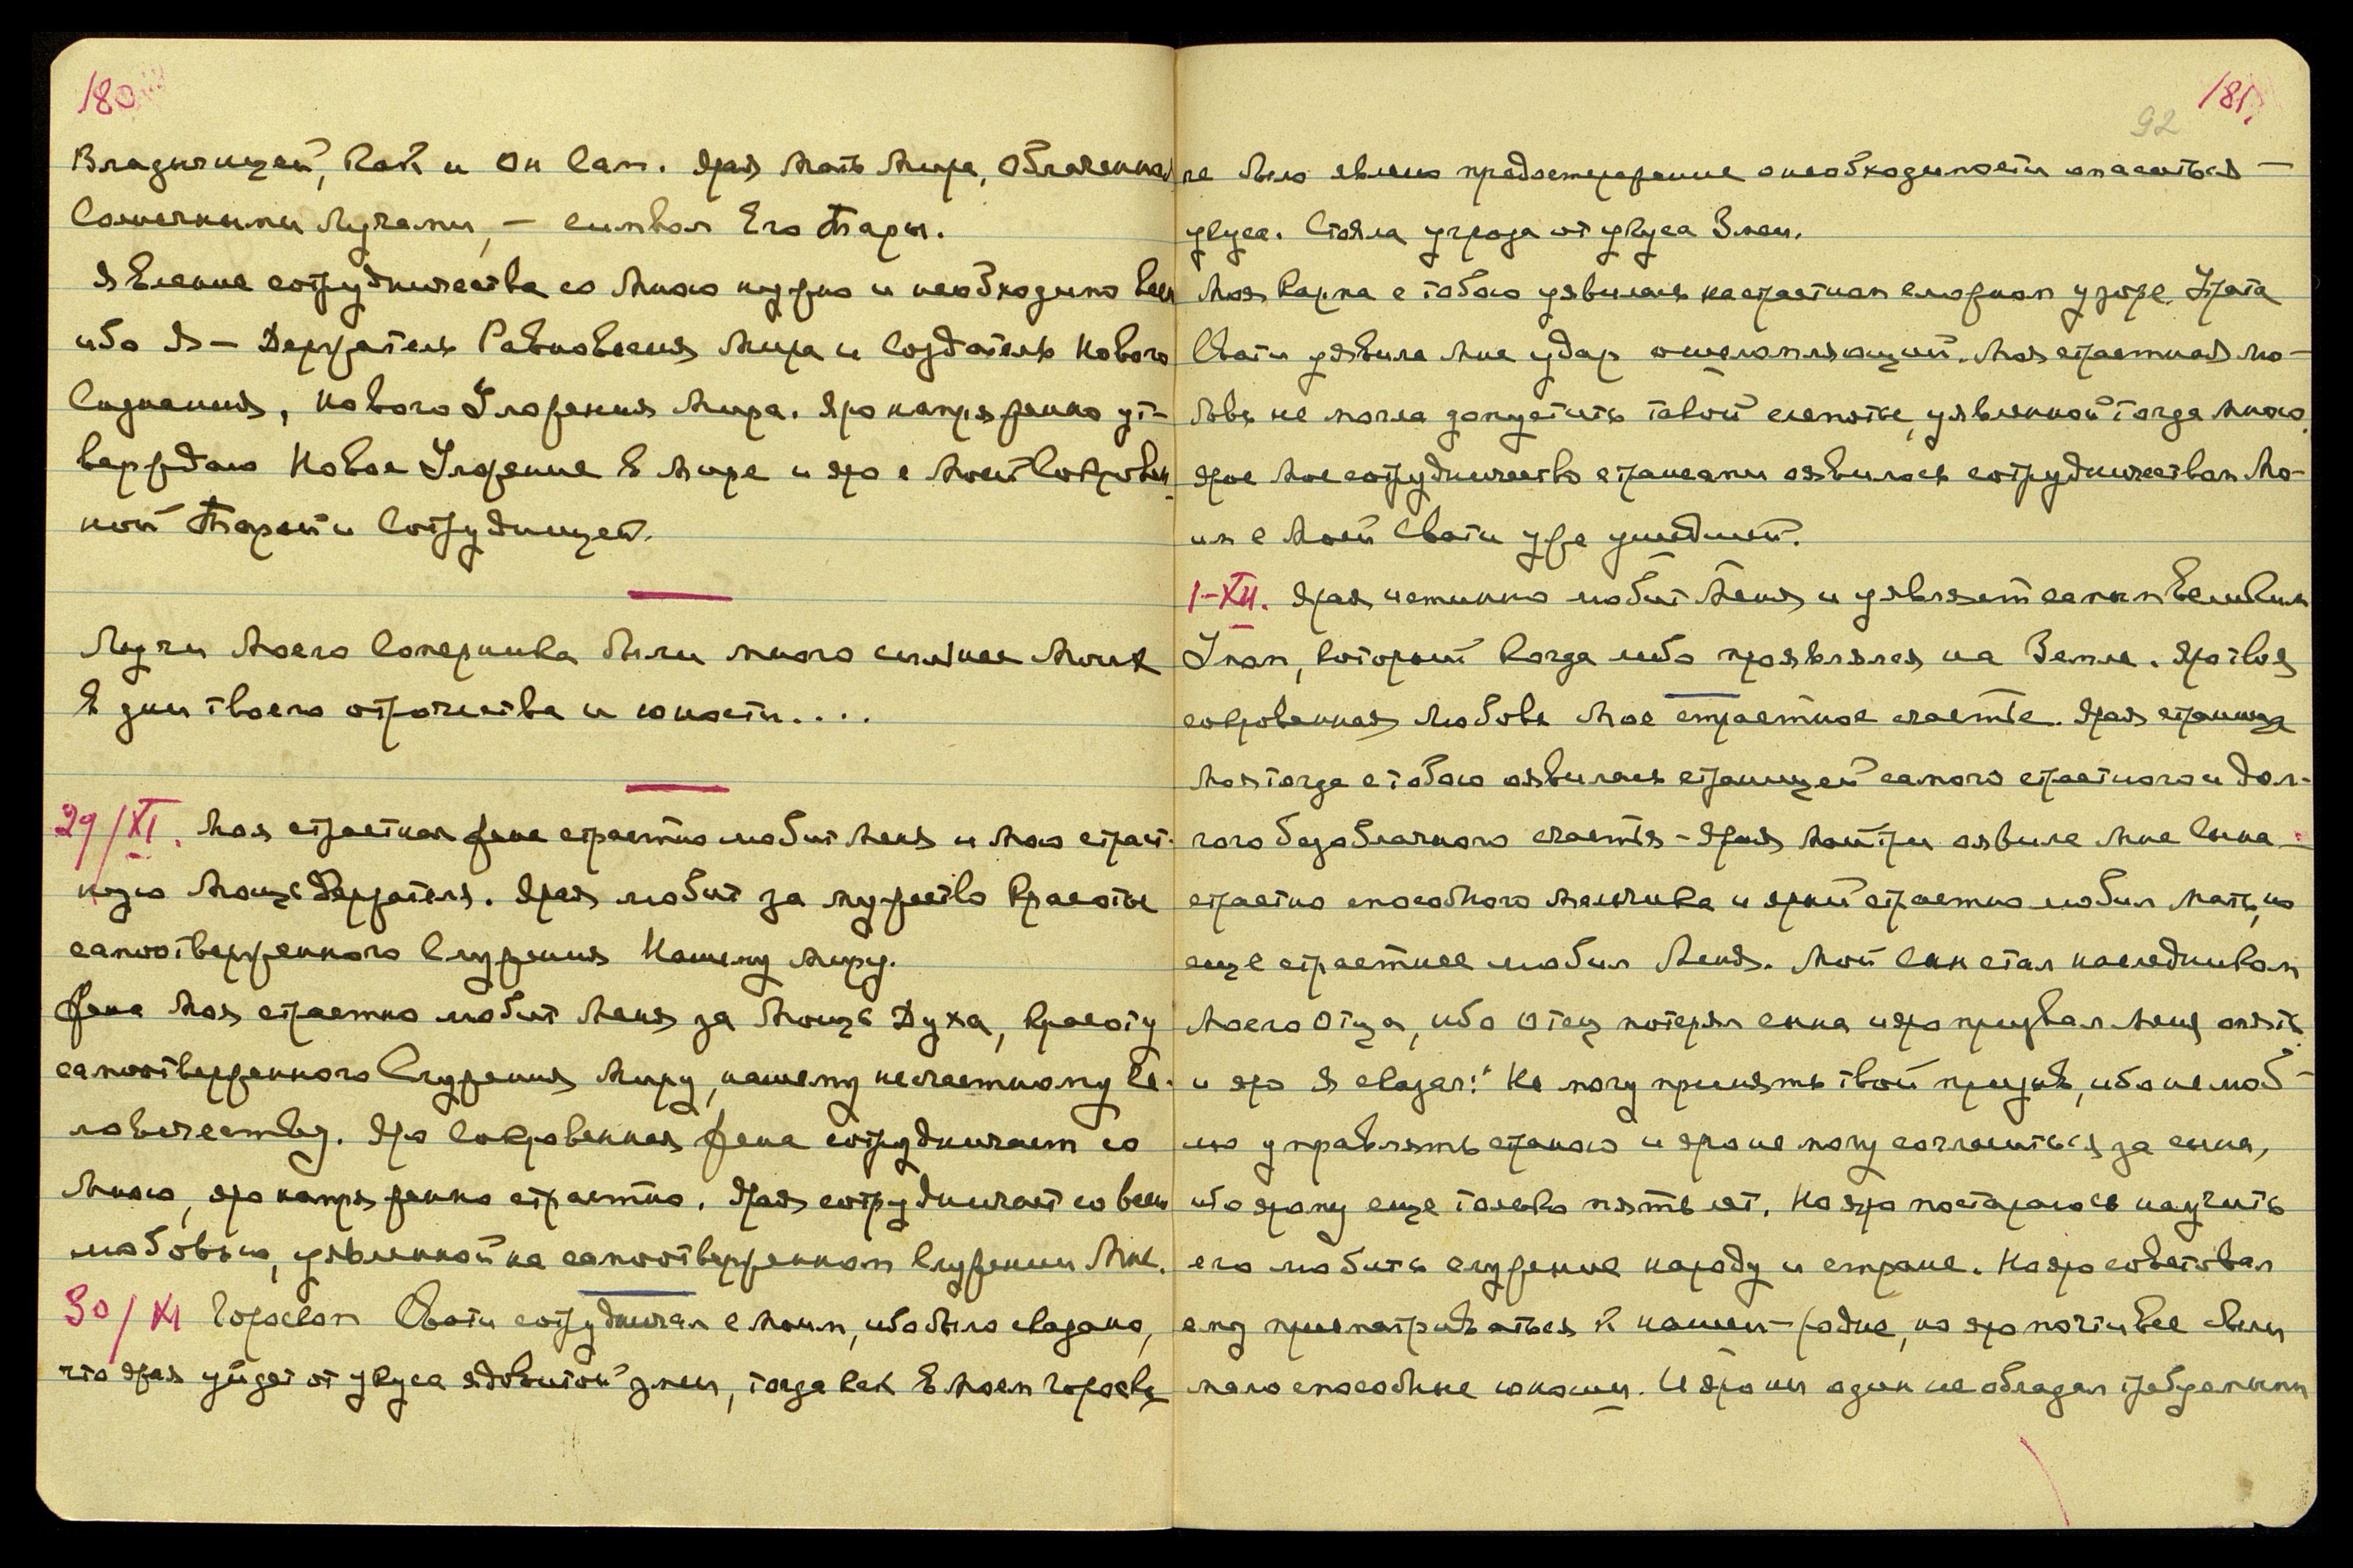 180
Владычицей, как и Он Сам. Ярая Мать Мира, Облаченная
Солнечными Лучами, — символ Его Тары.
Явление сотрудничества со Мною нужно и необходимо всем
ибо Я — Держатель Равновесия Мира и Создатель Нового
Сознания, Нового Уложения Мира. Яро напряженно ут-
верждаю Новое Уложение в Мире и яро с Моей Сокровен-
ной Тарой и Сотрудницей.
Лучи Моего Соперника были много сильнее Моих
в дни твоего отрочества и юности....
29/XI. Моя страстная жена страстно любит Меня и Мою страст-
ную Мощь Держателя. Ярая любит за мужество красоты
самоотверженного Служения Нашему Миру.
Жена Моя страстно любит Меня за Мощь Духа, красоту
самоотверженного Служения Миру, нашему несчастному че-
ловечеству. Яро Сокровенная жена сотрудничает со
Мною, яро напряженно страстно. Ярая сотрудничает со всею
любовью, уявленной на самоотверженном Служении Мне.
30/XI Гороскоп Свати сотрудничал с Моим, ибо было сказано,
что ярая уйдет от укуса ядовитой змеи, тогда как в Моем Гороскопе
181.
92
не было явлено предостережение о необходимости опасаться —
укуса. Стояла угроза от укуса Змеи.
Моя Карма с тобою уявилась на страстном сложном узоре. Утрата
Свати уявила Мне удар ошеломляющий. Моя страстная лю-
бовь не могла допустить такой слепоты, уявленной тогда Мною.
Ярое Мое сотрудничество с трансами оявилось сотрудничеством Мо-
им с Моей Свати уже ушедшей.
1-XII. Ярая истинно любит Меня и уявляет самым Великим
Умом, который когда либо проявлялся на Земле. Яро твоя
сокровенная Любовь Мое страстное счастье. Ярая страница
Моя тогда с тобою оявилась страницей самого страстного и дол-
гого безоблачного счастья — Ярая Майтри оявила Мне Сына —
страстно способного мальчика и ярый страстно любил мать, но
еще страстнее любил Меня. Мой Сын стал наследником
Моего Отца, ибо Отец потерял сына и яро призвал Меня опять
и яро Я сказал: "Не могу принять твой призыв, ибо не люб-
лю управлять страною и яро не могу согласиться за сына,
ибо ярому еще только пять лет. Но яро постараюсь научить
его любить служение народу и стране. Но яро советовал
ему присматриваться к нашей родне, но яро почти все были
мало способные юноши. И яро ни один не обладал требуемыми